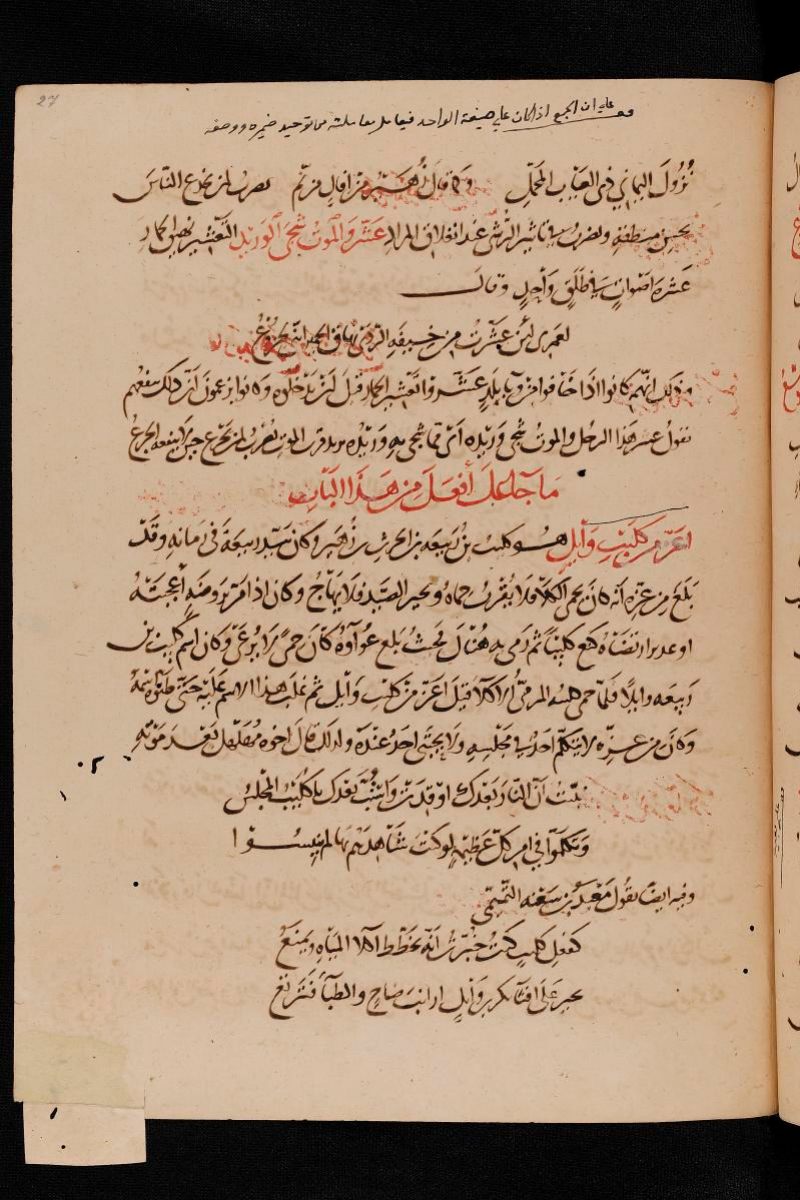 27
على ان الجمع اذا كان على صيغة الواحد فيعامل معاملته من توحيد ضميره ووصفه
نُزُولَ اليماني ذي العِيَابِ المُحمَّلِ وكما قال من قال من ثم يضرب لمن يخدع الناس
بحسن منطقه ويضرب في تاثير الرُّشى عند انغلاق المراد عَشِّرْ وَالموتُ شجى الوريد التعشير نهيق الحمار
عشرة اصوات في طلق واحد وقال
لعمري لئن عشّرت من خيفة الردى نهاق الحمير انني لجزوع
وذلك انهم كانوا اذا خافوا من وباء بلد عشّروا تعشير الحمار قبل ان يدخلوه وكانوا يزعمون ان ذلك ينفعهم
يقول عشر هذا الرجل والموت شجى وريده اى مما شجى به وريده يريد قرب الموت يضرب لمن يجزع حين لا ينفعه الجزع
ما جاء على أفعل من هذا الباب
اعزّ من كليب وايل هو كليب بن ربيعة بن الحرث بن زهير وكان سيد ربيعة في زمانه وقد
بلغ من عزه انه كان يحمي الكلا فلا يُقرب حماه ويجير الصيد فلا يهاج وكان اذا مرّ بروضة أعجبته
او غدير ارتضاه كنع كليبا ثم رمى به هناك فحيث بلغ عواؤه كان حمى لا يرعى وكان اسم كليب بن
ربيعة وايلا فلما حمى كليبه المرمي الكلا قيل اعز من كليب وايل ثم غلب هذا الاسم عليه حتى ظنوه اسمه
وكان من عزه لا يتكلم احد في مجلسه ولا يحتبي احد عنده ولذلك قال اخوه مهلهل بعد موته
نُبّئتُ ان النار بعدك اوقدت واستبّ بعدك يا كليب المجلس
وتكلموا في امر كل عظيمة لو كنت شاهدهم بها لم ينبسوا
وفيه ايضا يقول معبد بن سعنة التميمي
كفعل كليب كنت خبّرت انه يخطط اكلاء المياه ويمنع
يجير على افناء بكر بن وايل ارانب ضاح والظباء فترتع